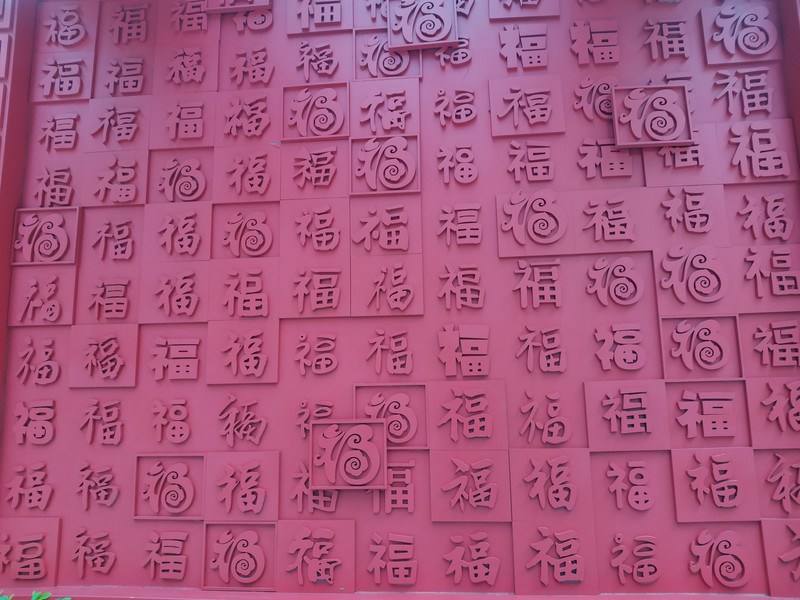 福福福福福福福
福福福福福福福福福福福
福福福福福福福福福福福
福福福福福福福福福福福
福福福福福福福福福福福
福福福福福福福福福福福
福福福福福福福福福福福
福福福福福福福福福福福
福福福福福福福福福福福
福福福福福福福福福福